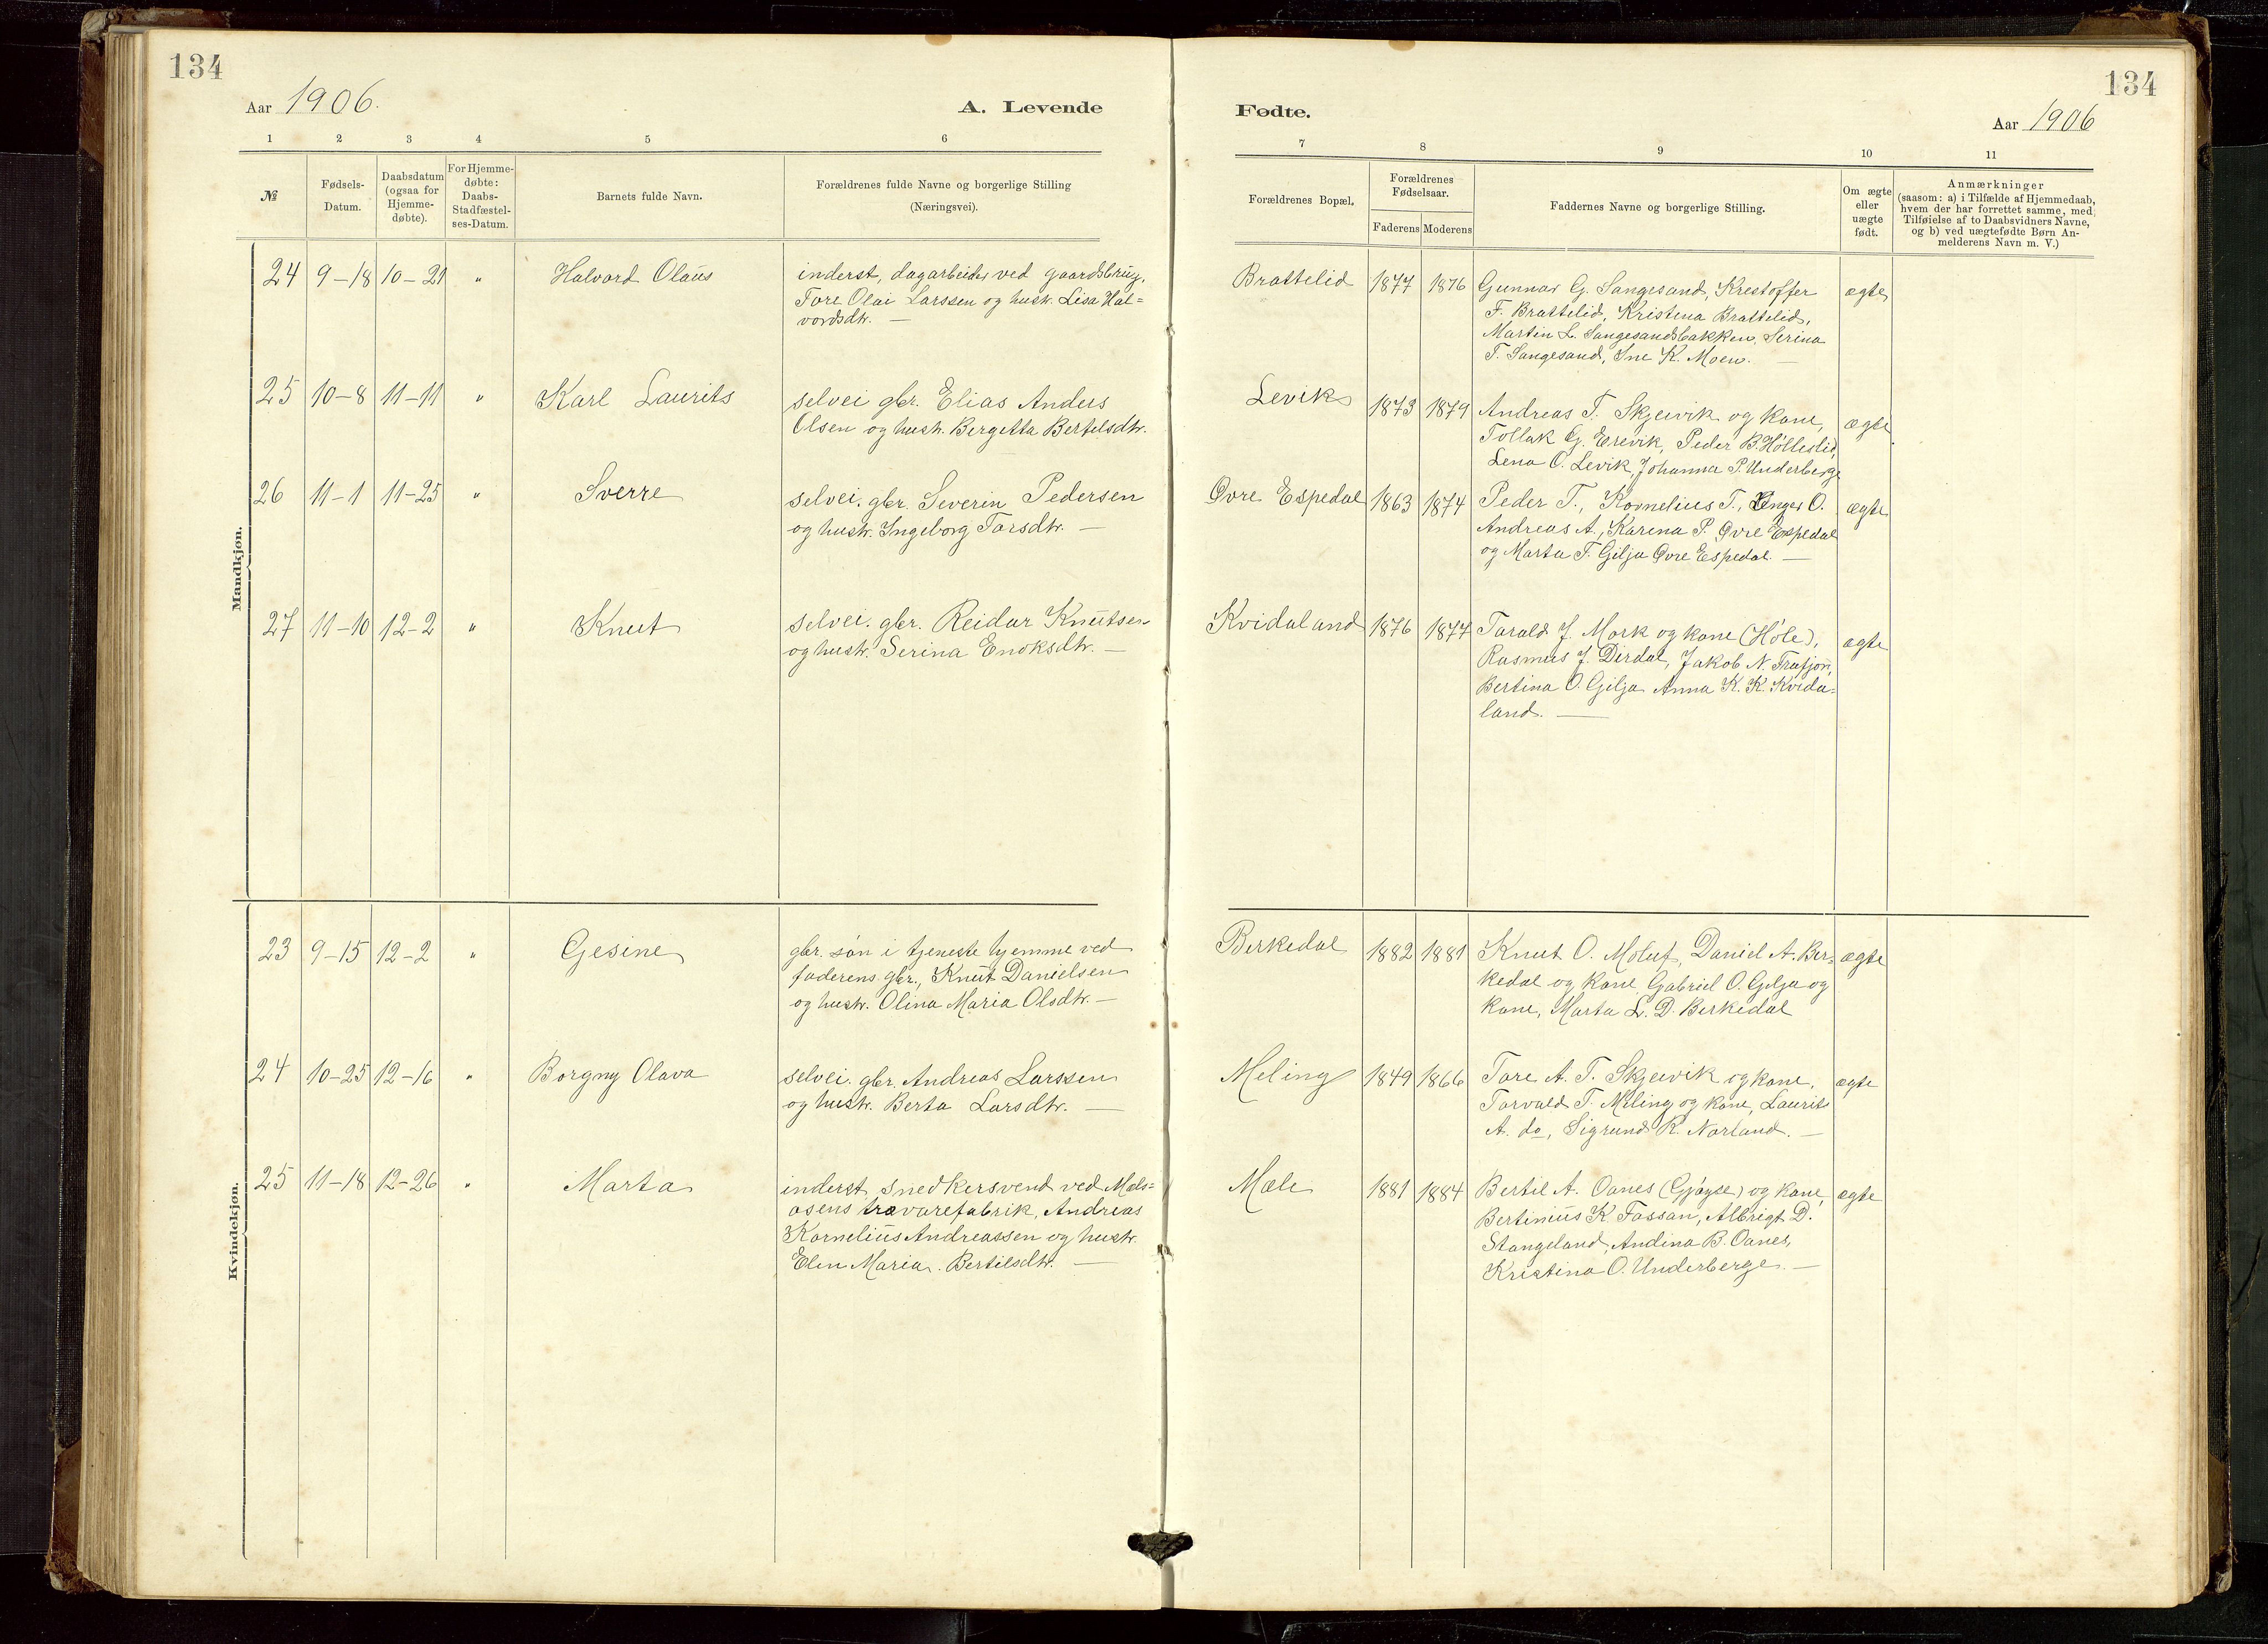 134
Aar 1906.
A. Levende
1 2 3 4 5 6
№
Fødsels-
Datum.
Daabsdatum
(ogsaa for
Hjemme-
døbte).
For Hjemme-
døbte:
Daabs-
Stadfæstel-
ses-Datum.
Barnets fulde Navn.
Forældrenes fulde Navne og borgerlige Stilling
(Næringsvei).
Mandkjøn.
24 9-18 10-21 " Halvord Olaus
inderst, dagarbeider ved gaardsbrug,
Tore Olai Larssen og hustr. Lisa Hal=
vordsdtr. —
25 10-8 11-11 " Karl Laurits
selvei gbr. Elias Anders
Olsen og hustr. Bergetta Bertelsdtr.
26 11-1 11-25 " Sverre
selvei. gbr. Severin Pedersen
og hustr. Ingeborg Torsdtr. —
27 11-10 12-2 " Knut
selvei. gbr. Reidar Knutsen
og hustr. Serina Enoksdtr. —
Kvindekjøn.
23 9-15 12-2 " Gesine
gbr. søn i tjeneste hjemme ved
faderens gbr., Knut Danielsen
og hustr. Olina Maria Olsdtr. —
24 10-25 12-16 " Borgny Olava
selvei. gbr. Andreas Larssen
og hustr. Berta Larsdtr. —
25 11-18 12-26 " Marta
inderst, snedkersvend ved Mæls=
osens trævarefabrik, Andreas
Kornelius Andreassen og hustr.
Elen Maria Bertilsdtr. —
134
Fødte.
Aar 1906
7 8 9 10 11
Forældrenes Bopæl.
Forældrenes
Fødselsaar.
Faderens Moderens
Faddernes Navne og borgerlige Stilling.
Om ægte
eller
uægte
født.
Anmærkninger
(saasom: a) i Tilfælde af Hjemmedaab,
hvem der har forrettet samme, med
Tilføielse af to Daabsvidners Navne,
og b) ved uægtefødte Børn An-
melderens Navn m. V.)
Brattelid 1877 1876 Gunnar G. Sangesand, Krestoffer ægte
F. Brattelid, Kristina Brattelid,
Martin L. Sangesandsbakken, Serina
T. Sangesand, Ine K. Moen. —
Levik 1873 1879 Andreas T. Skjeivik og kone, ægte
Tollak G. Erevik, Peder B. Helleslid,
Lena O. Levik, Johanna P. Underberge
Øvre Espedal 1863 1874 Peder T., Kornelius T., Inger O. ægte
Andreas A., Karina P. Øvre Espedal
og Marta T. Gilja Øvre Espedal. —
Kvidaland 1876 1877 Torald J. Mork og kone (Høle), ægte
Rasmus J. Dirdal, Jakob N. Frafjor,
Bertina O. Gilja Anna K. K. Kvida=
land. —
Berkedal 1882 1881 Knut O. Moluf, Daniel A. Ber= ægte
kedal og kone, Gabriel O. Gilja og
kone, Marta L. D. Berkedal
Meling 1849 1866 Tore A. T. Skjeivik og kone, ægte
Torvald T. Meling og kone, Laurits
A. do, Sigrund R. Norland. —
Mæle 1881 1884 Bertil A. Oanes (Gjøyse) og kone, ægte
Bertinius K. Fossan, Albrigt D.
Stangeland, Andina B. Oanes,
Kristina O. Underberge. —